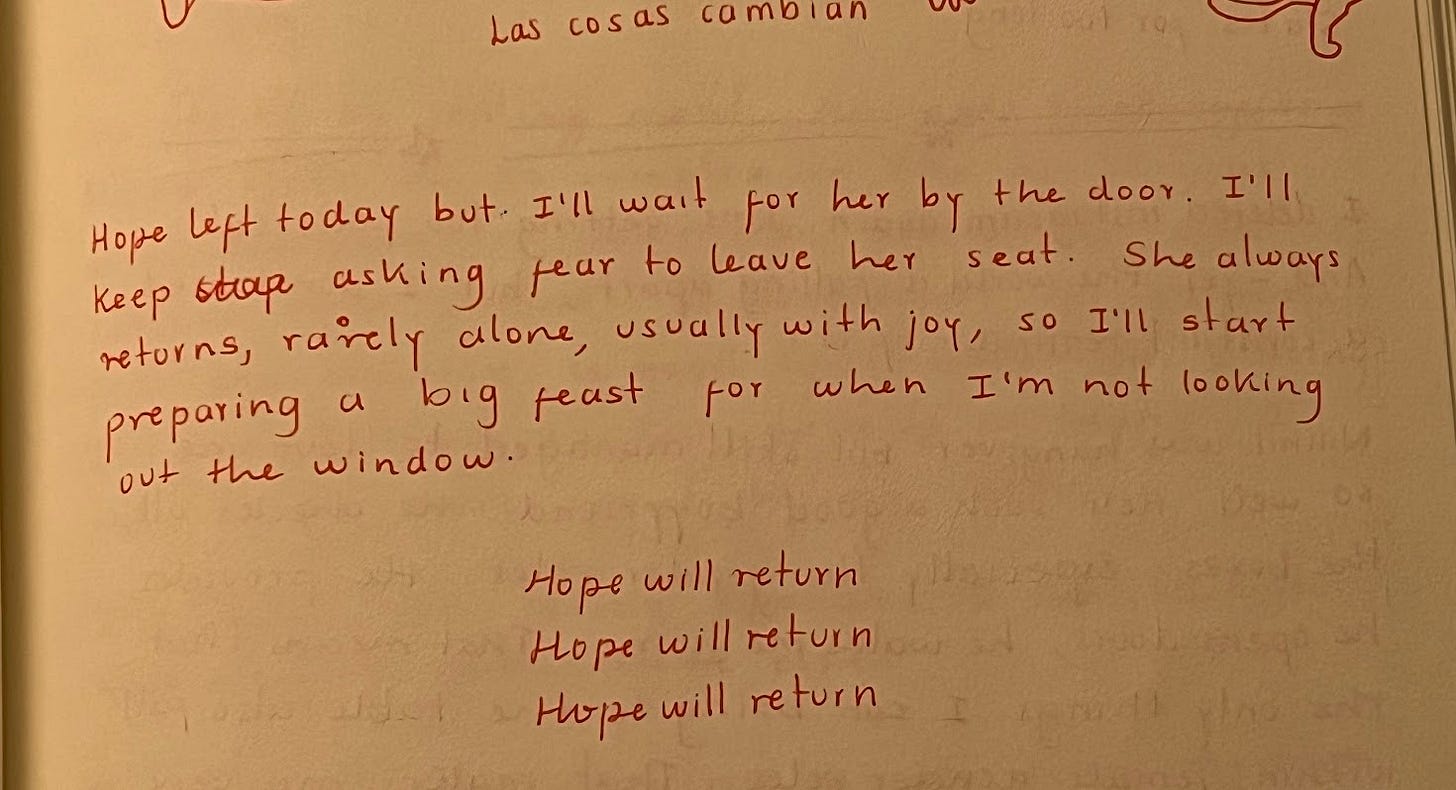 Las cosas cambian
Hope left today but. I'll wait for her by the door. I'll
keep asking fear to leave her seat. She always
returns, rarely alone, usually with joy, so I'll start
preparing a big feast for when I'm not looking
out the window.
Hope will return
Hope will return
Hope will return